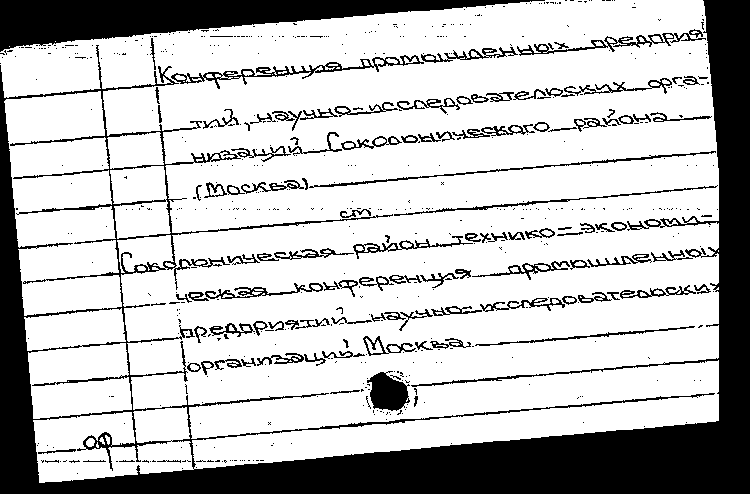 Конференция промышленных предприя
тий, научно-исследовательских орга-
низаций Сокольнического района.
(Москва)
см.
Сокольническая район. технико-экономи-
ческая конференция промышленных
предприятий научно-исследовательских
организаций. Москва.
аф